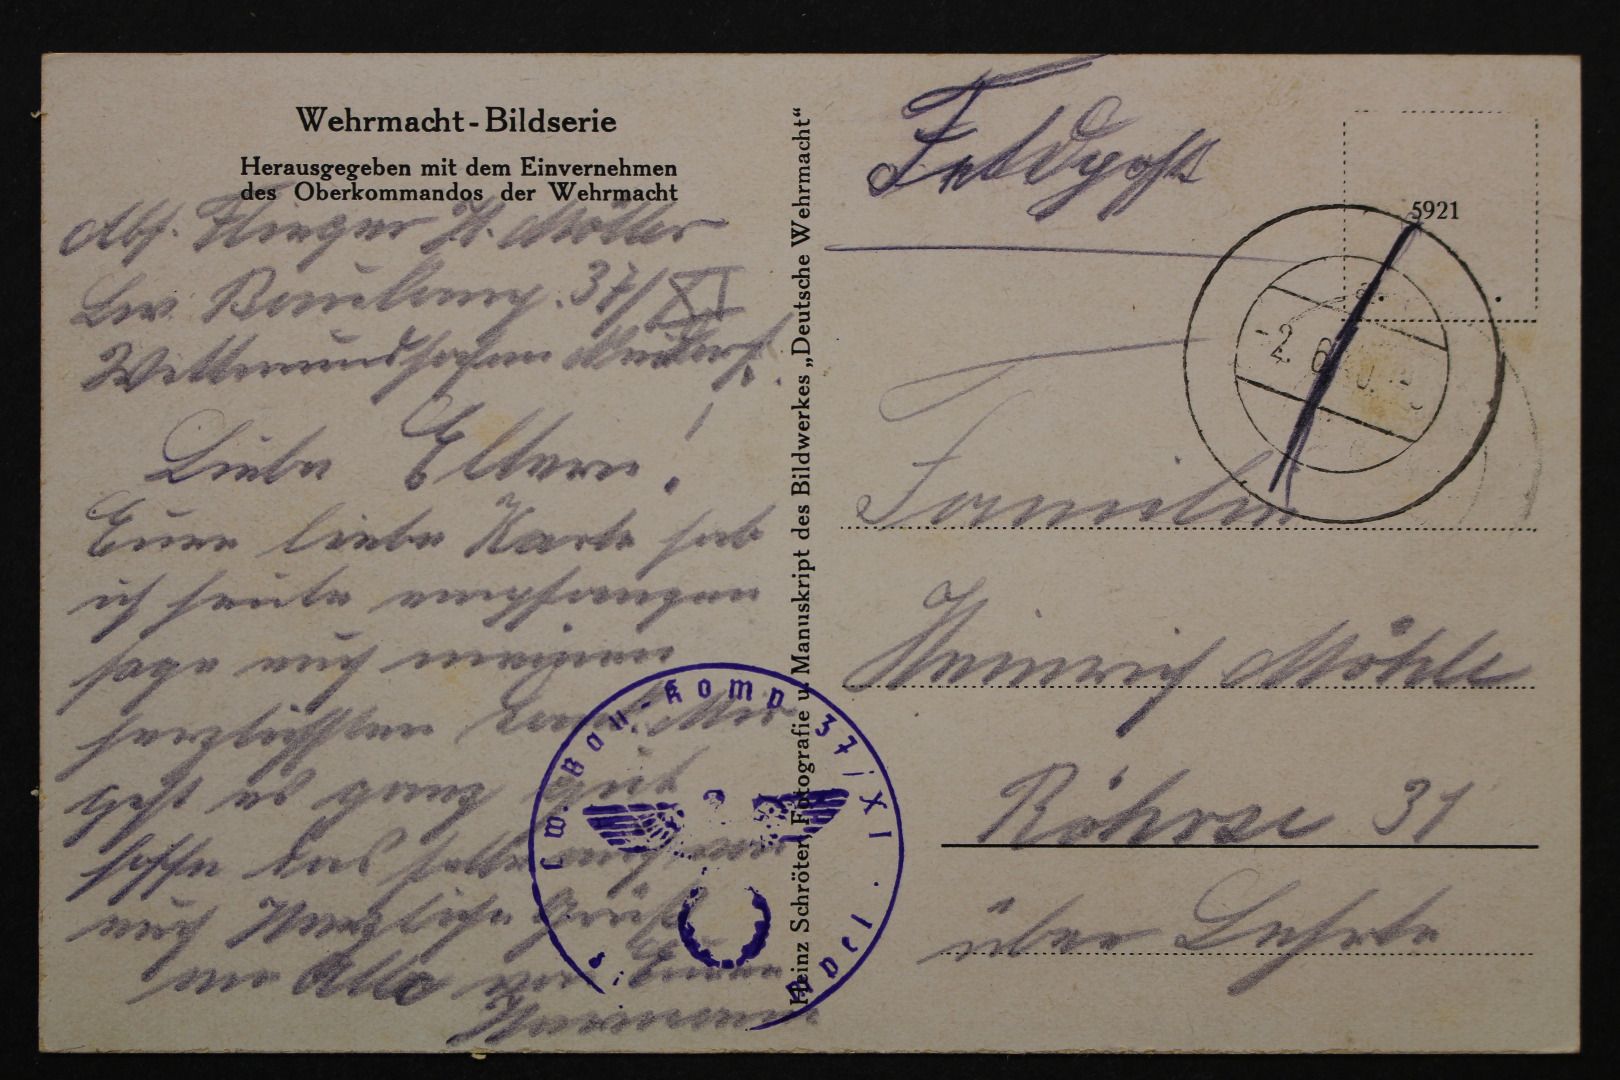 Wehrmacht-Bildserie
Herausgegeben mit dem Einvernehmen
des Oberkommandos der Wehrmacht
Abs. Flieger H. Möller
Lw. Baukomp. 37/XI
Wittmundhafen
Liebe Eltern!
Eure liebe Karte hab
ich heute empfangen
sage euch meinen
herzlichsten Dank. Mir
geht es ganz gut
hoffe das selbe auch von
euch Herzliche Grüße
an Alle von Euren
Hermann
Heinz Schröter, Fotografie u. Manuskript des Bildwerkes „Deutsche Wehrmacht“
Lw.-Bau-Komp 37/XI
Feldpost
5921
Familie
Heinrich Möhle
Röhrse 31
über Lehrte